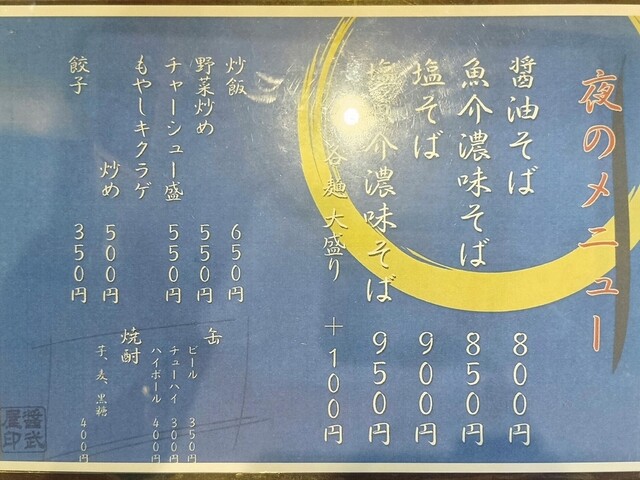 夜のメニュー
醤油そば 800円
魚介濃味そば 850円
塩そば 900円
塩魚介濃味そば 950円
各麺大盛り +100円
炒飯 650円
野菜炒め 550円
チャーシュー盛 550円
もやしキクラゲ
炒め 500円
餃子 350円
缶
ビール 350円
チューハイ 300円
ハイボール 400円
焼酎
芋、麦、黒糖 400円
醤武
屋印